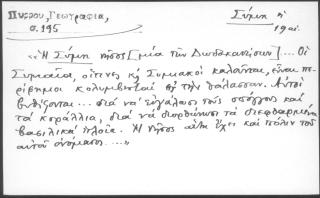 Πύρρου, Γεωγραφία,
σ. 195
Σύμη ἡ
19 αἰ.
«Ἡ Σύμη νῆσος [μία τῶν Δωδεκανήσων] ... Οἱ
Συμαῖοι, οἵτινες κ̣ Συμιακοί καλοῦνται, εἶναι πε-
ρίφημοι κολυμβηταί εἰς τήν θάλασσαν. Αὐτοί
βυθίζονται... διά νά εὐγάλωσι τούς σπόγγους καί
τά κοράλλια, διά νά διορθώνωσι τά διεφθαρμένα
βασιλικά πλοῖα. Ἡ νῆσος αὕτη ἔχει καί πόλιν τοῦ
αὐτοῦ ὀνόματος...»